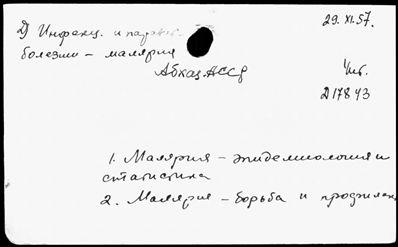 2) Инфекц. и параз.
29.XI.57.
болезни – малярия
Абхаз. АССР
Чит.
Д17843
1. Малярия – эпидемиология и
статистика
2. Малярия – борьба и профилак